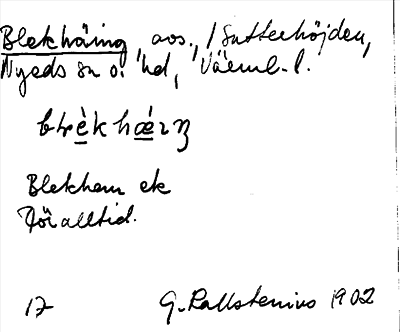 Blekhäing, avs., i Sutterhöjden,
Nyeds sn o. hd, Värml. l.
Blekhem ek
för alltid.
17 G. Kallstenius 1902